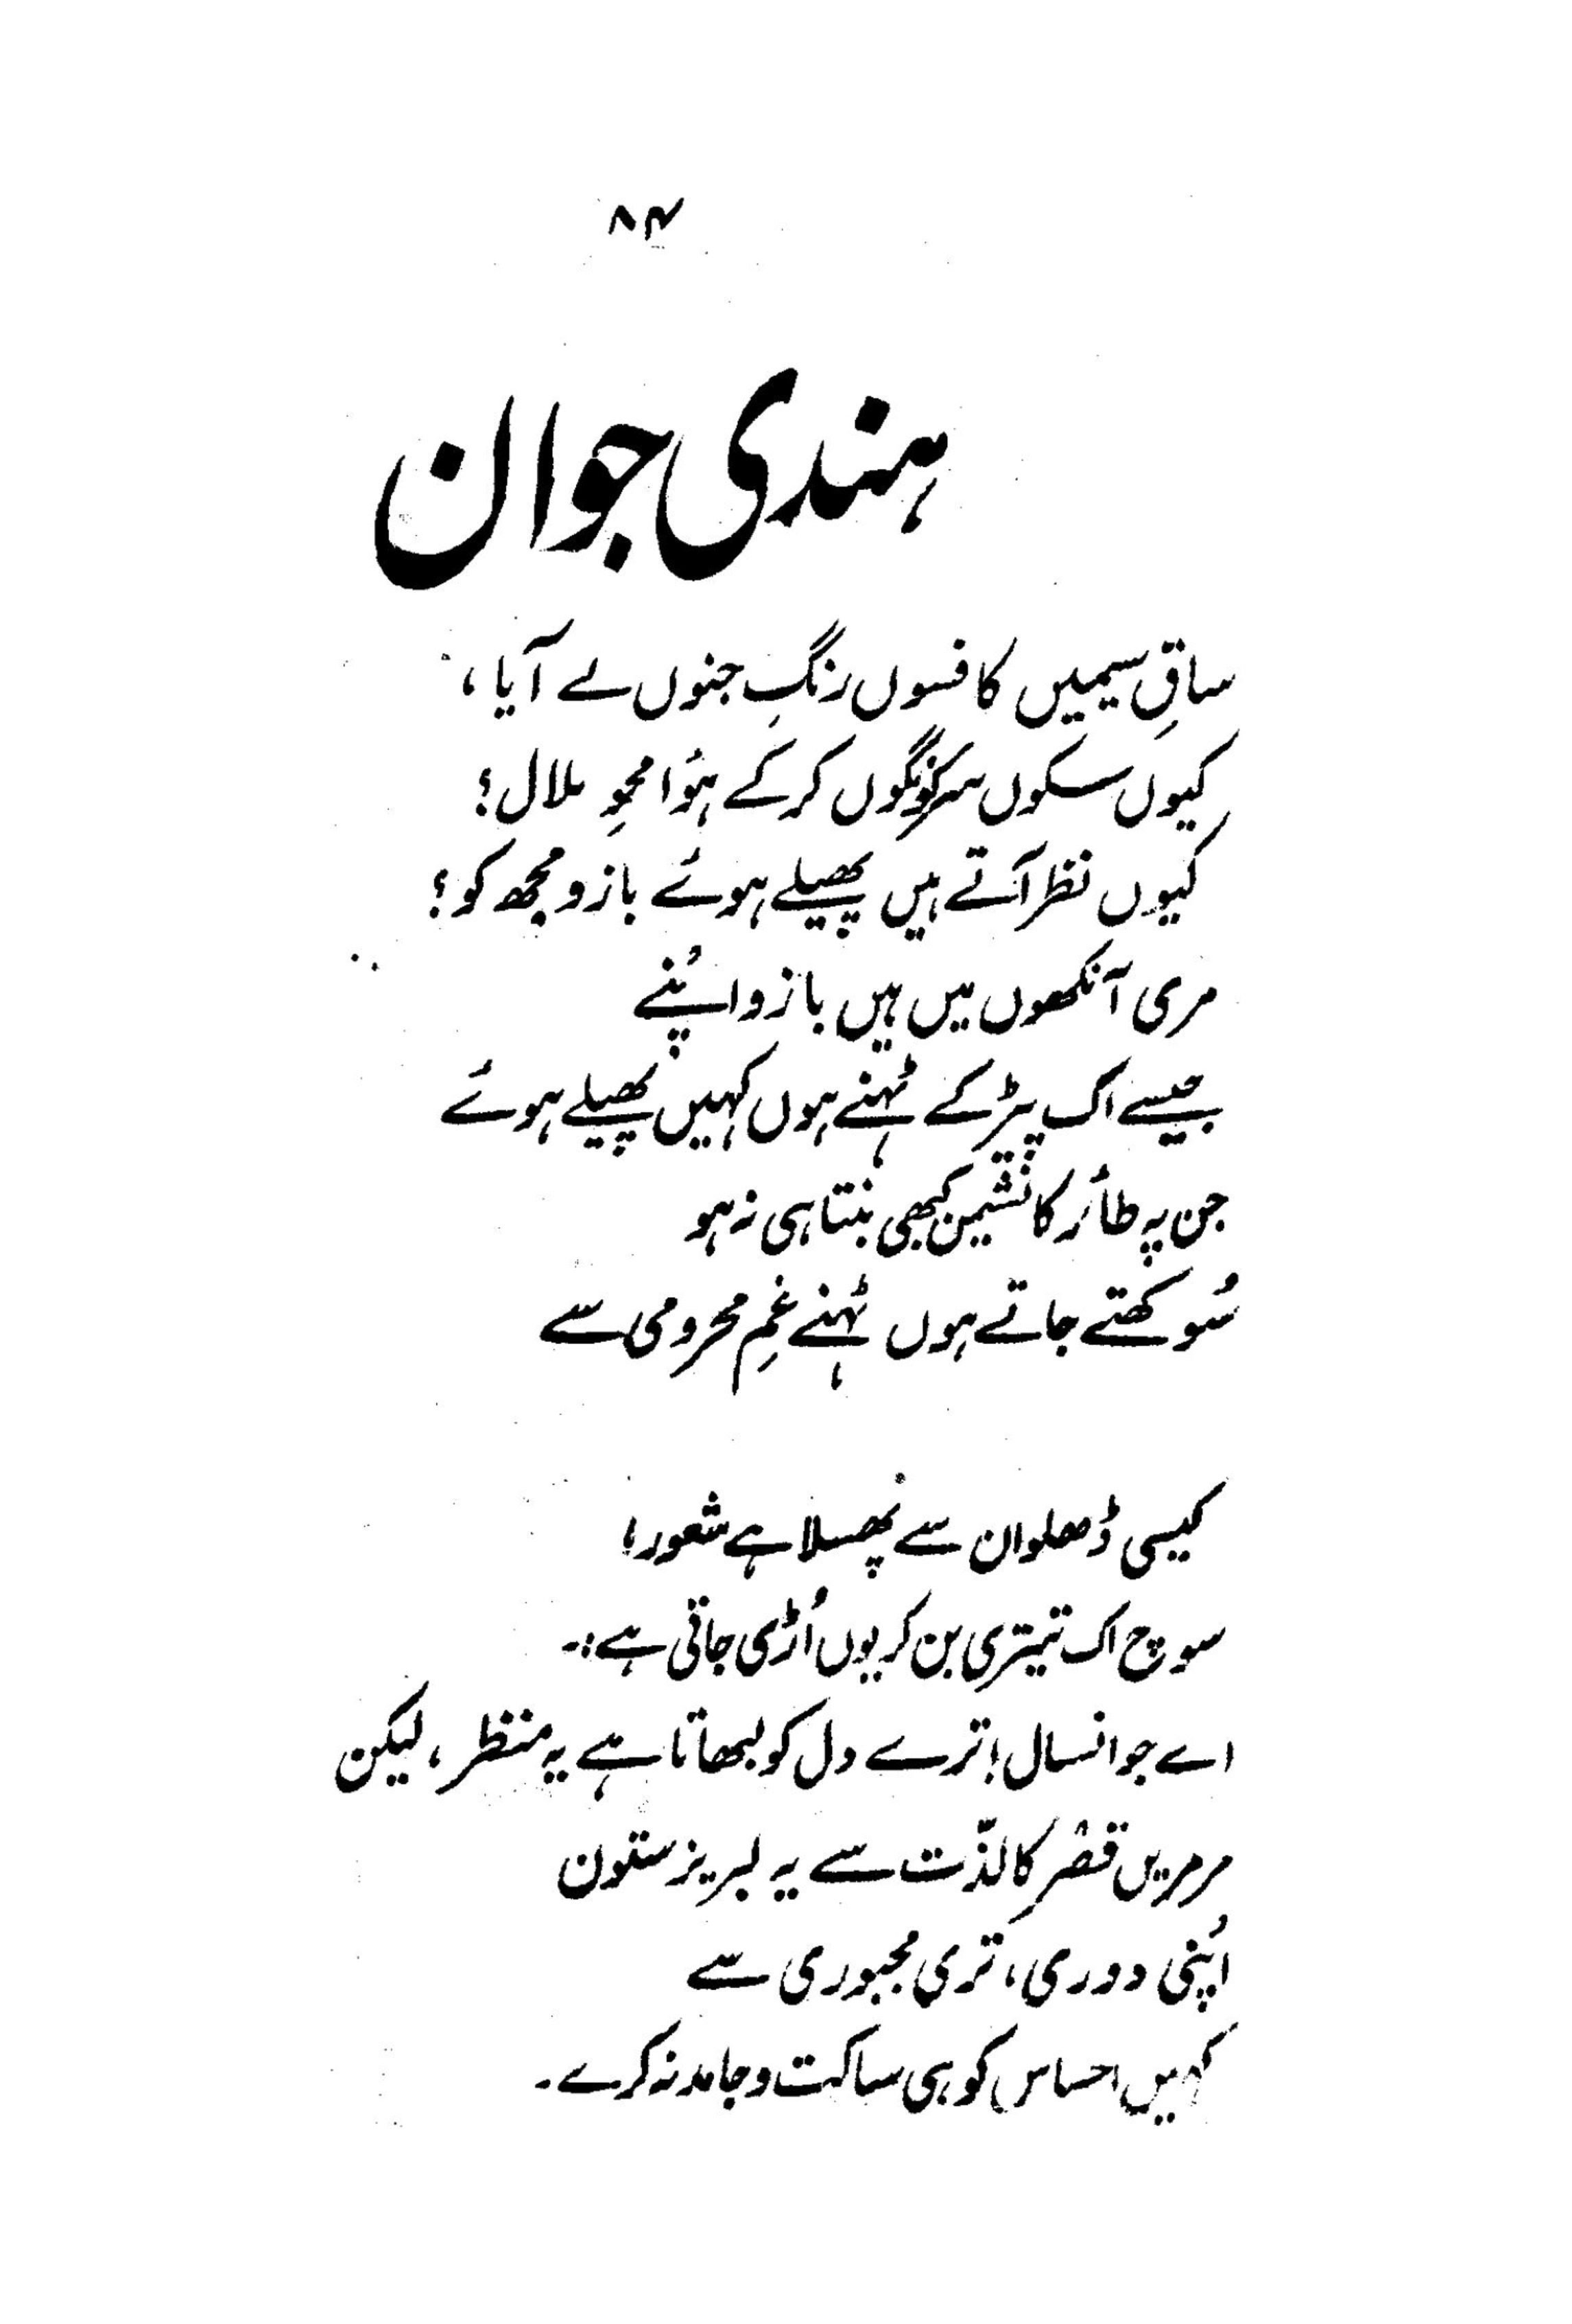 ۸۴
ہندی جوان
ساقِ سیمیں کا فسوں رنگِ جنوں لے آیا،
کیوں سکوں سر کو نگوں کر کے ہوُا محوِ ملال؟
کیوں نظر آتے ہیں پھیلے ہوئے بازو مجھ کو؟
مری آنکھوں میں ہیں بازو اپنے
جیسے اک پیڑ کے ٹہنے ہوں کہیں پھیلے ہوئے
جن پہ طائر کا نشیمن کبھی بنتا ہی نہ ہو
سُوکھتے جاتے ہوں ٹہنے غمِ محرومی سے
کیسی ڈھلوان سے پھسلا ہے شعور!
سوچ اک تیتری بن کر یوں اُڑی جاتی ہے:۔
اے جواں سال! ترے دل کو لبھاتا ہے یہ منظر، لیکن
مرمریں قصر کا لذّت سے یہ لبریز ستون
اپنی دوری، تری مجبوری سے
کہیں احساس کو ہی ساکت و جامد نہ کرے۔